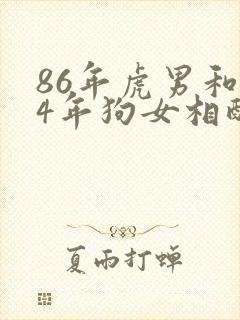 86年虎男和
4年狗女相配
夏雨打蝉